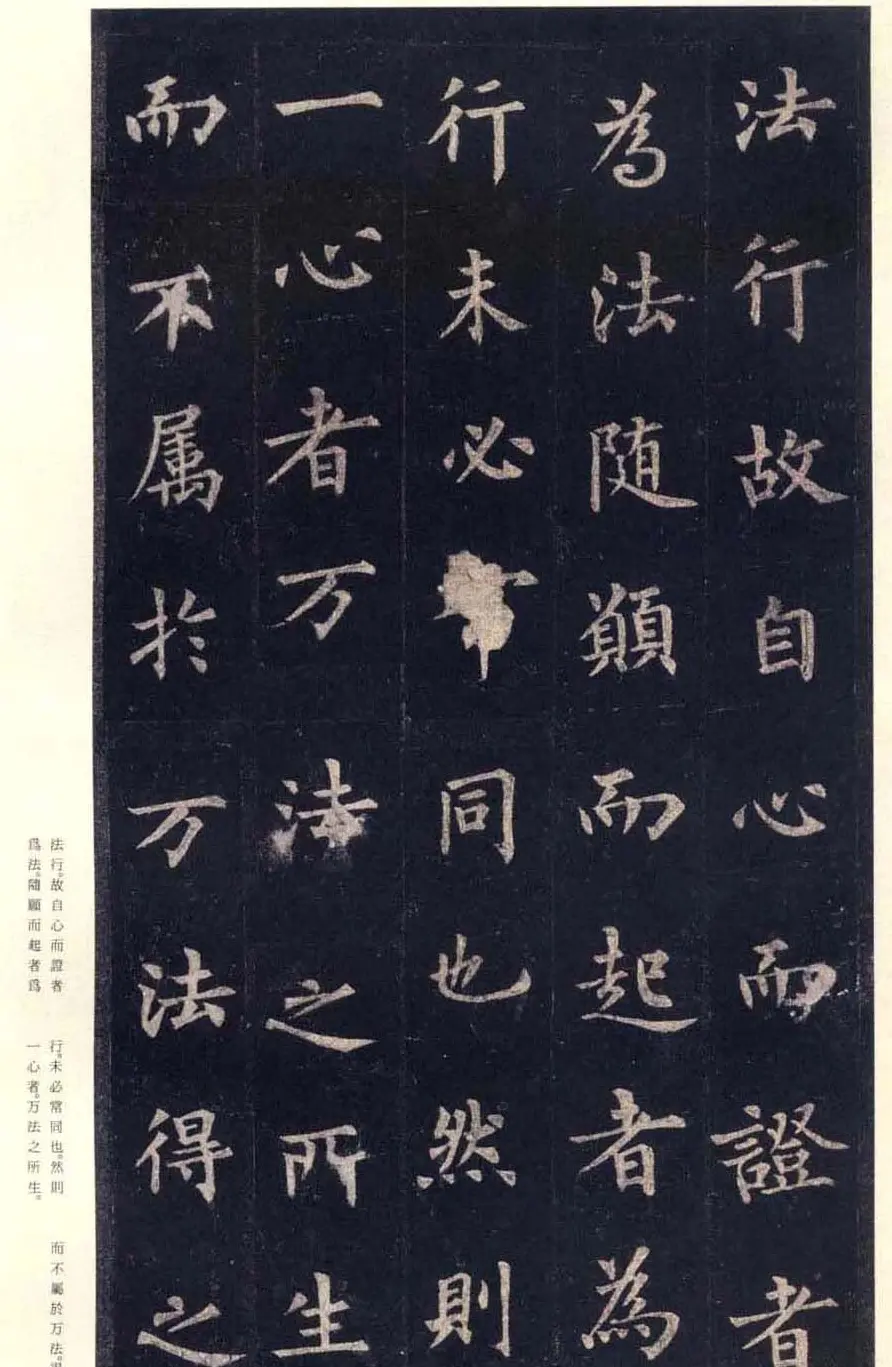 法行故自心而證者
為法随願而起者為
行未必常同也然則
一心者万法之所生
而不属於万法得之
法行。故自心而證者
爲法。隨願而起者爲
行。未必常同也。然則
一心者。万法之所生。
而不屬於万法。得